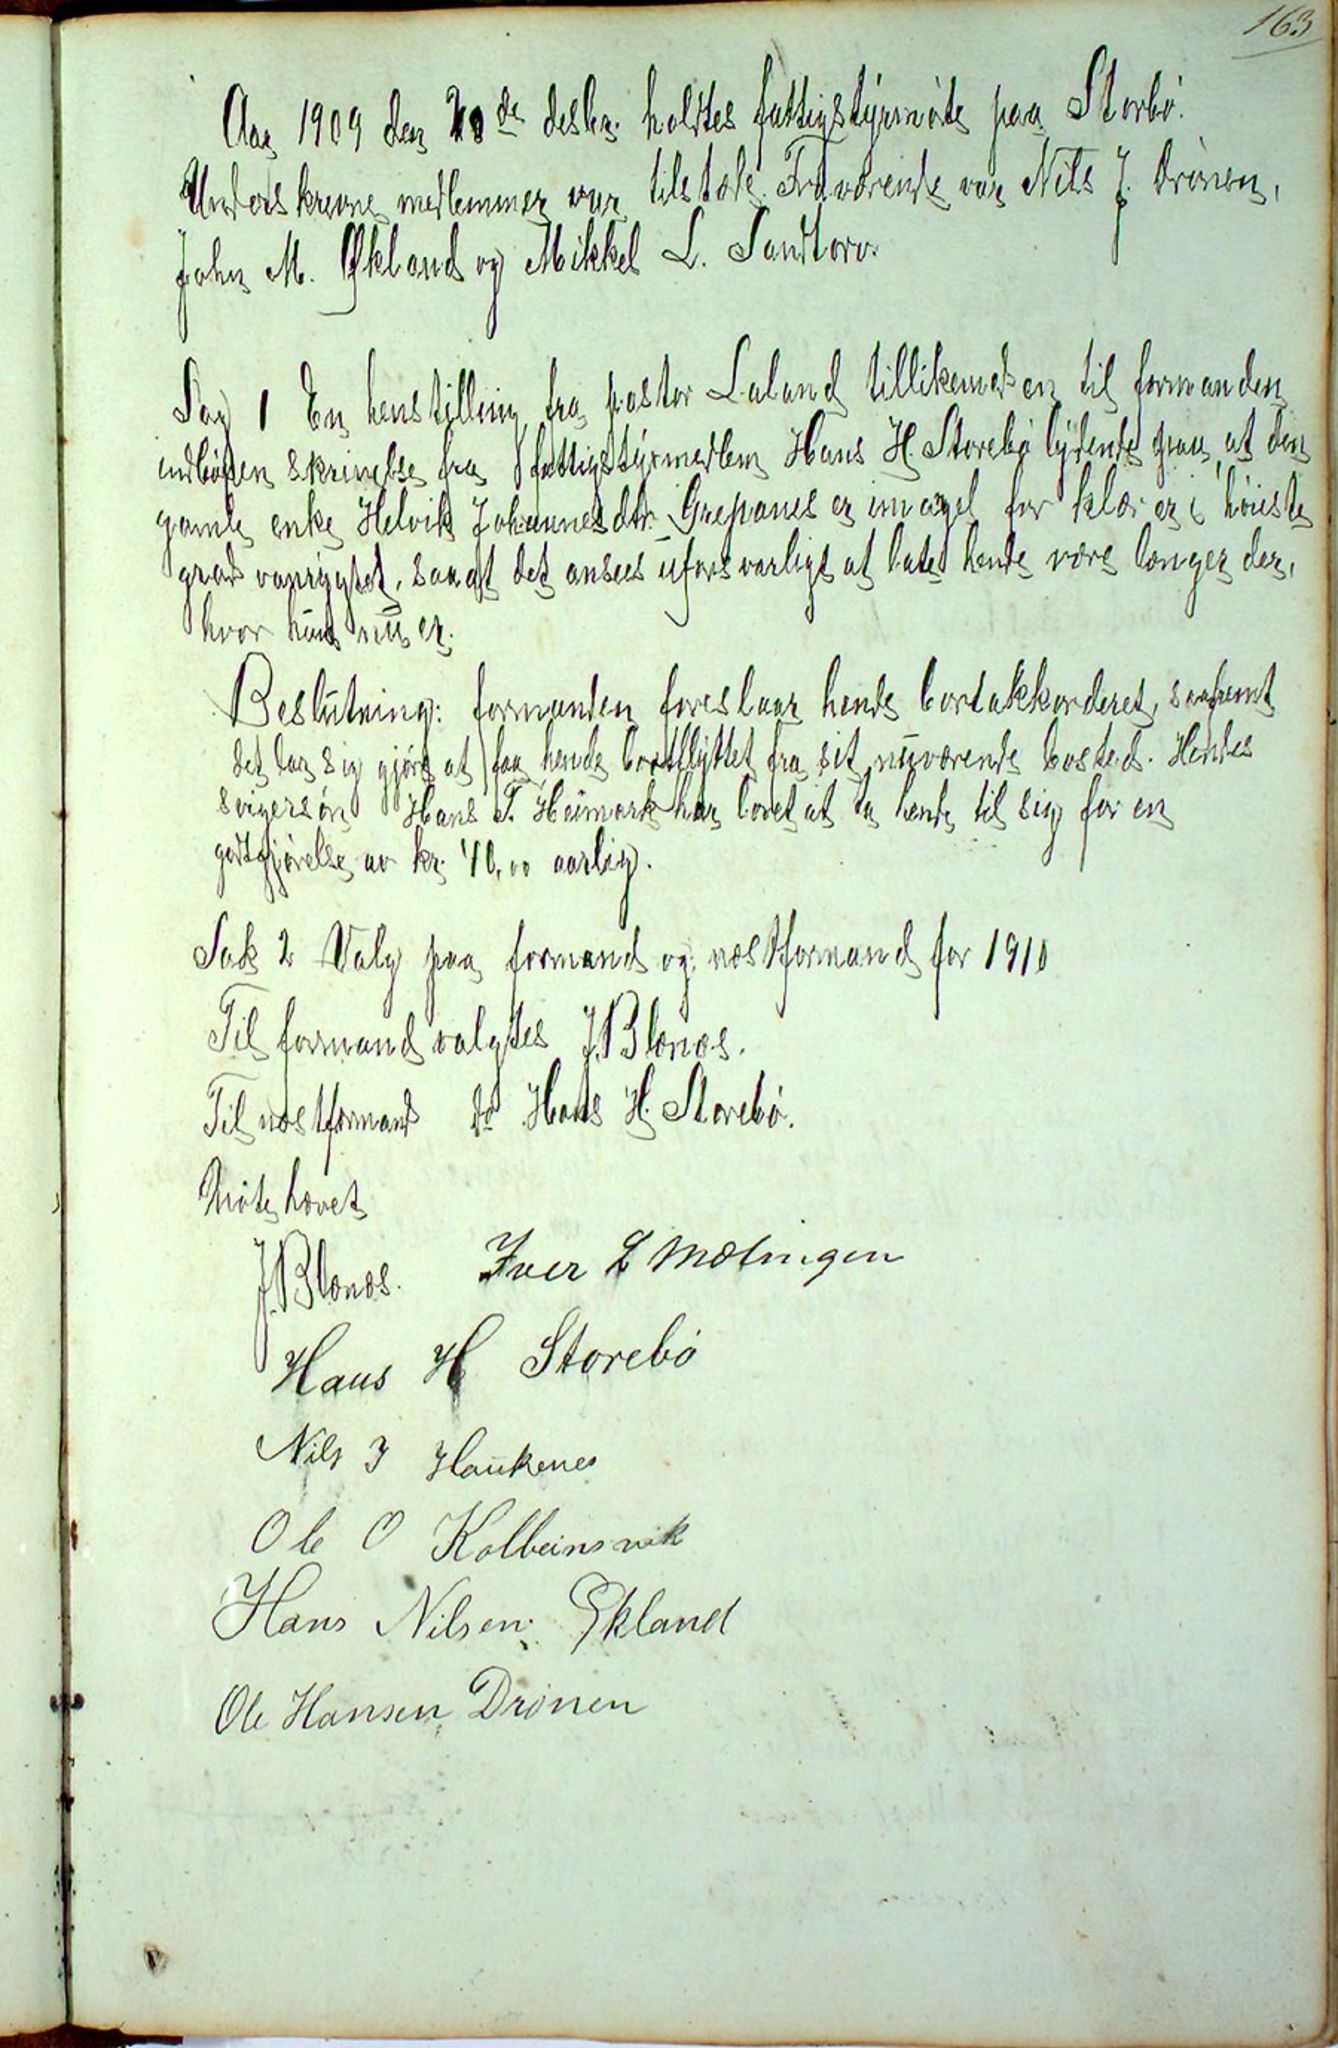 163
Aar 1909 den 20de desbr. holdtes fattigstyrmøte paa Storbø.
Underskrevne medlemmer var tilstæde. Fraværende var Nils J. Drønen,
John M. Økland og Mikkel L. Sandtorv.
Sag 1 En henstilling fra pastor Laland tillikemed en til formanden
indløpen skrivelse fra fattigstyrmedlem Hans H. Storebø lydende paa, at den
gamle enke Helvik Johannesdtr. Grepanes er i mangel for klær er i høieste
grad vanrygtet, saa at det ansees uforsvarligt at lated hende være længer der,
hvor hun nu er.
Beslutning: formanden foreslaar hende bortakkorderet, saafremt
det lar sig gjøre at faa hende bortflyttet fra sit nuværende bosted. Hendes
svigersøn Hans T. Heimark har lovet at ta hende til sig for en
godtgjørelse av kr. 40,00 aarlig.
Sak 2 Valg paa formand og næstformand for 1910
Til formand valgtes J. Blænæs.
Til næstformand do Hans H. Storebø.
Møte hævet
J. Blænæs. Iver L Mølingen
Hans H Storebø
Nils J Haukenes
Ole O Kolbeinsvik
Hans Nilsen Økland
Ole Hansen Drønen